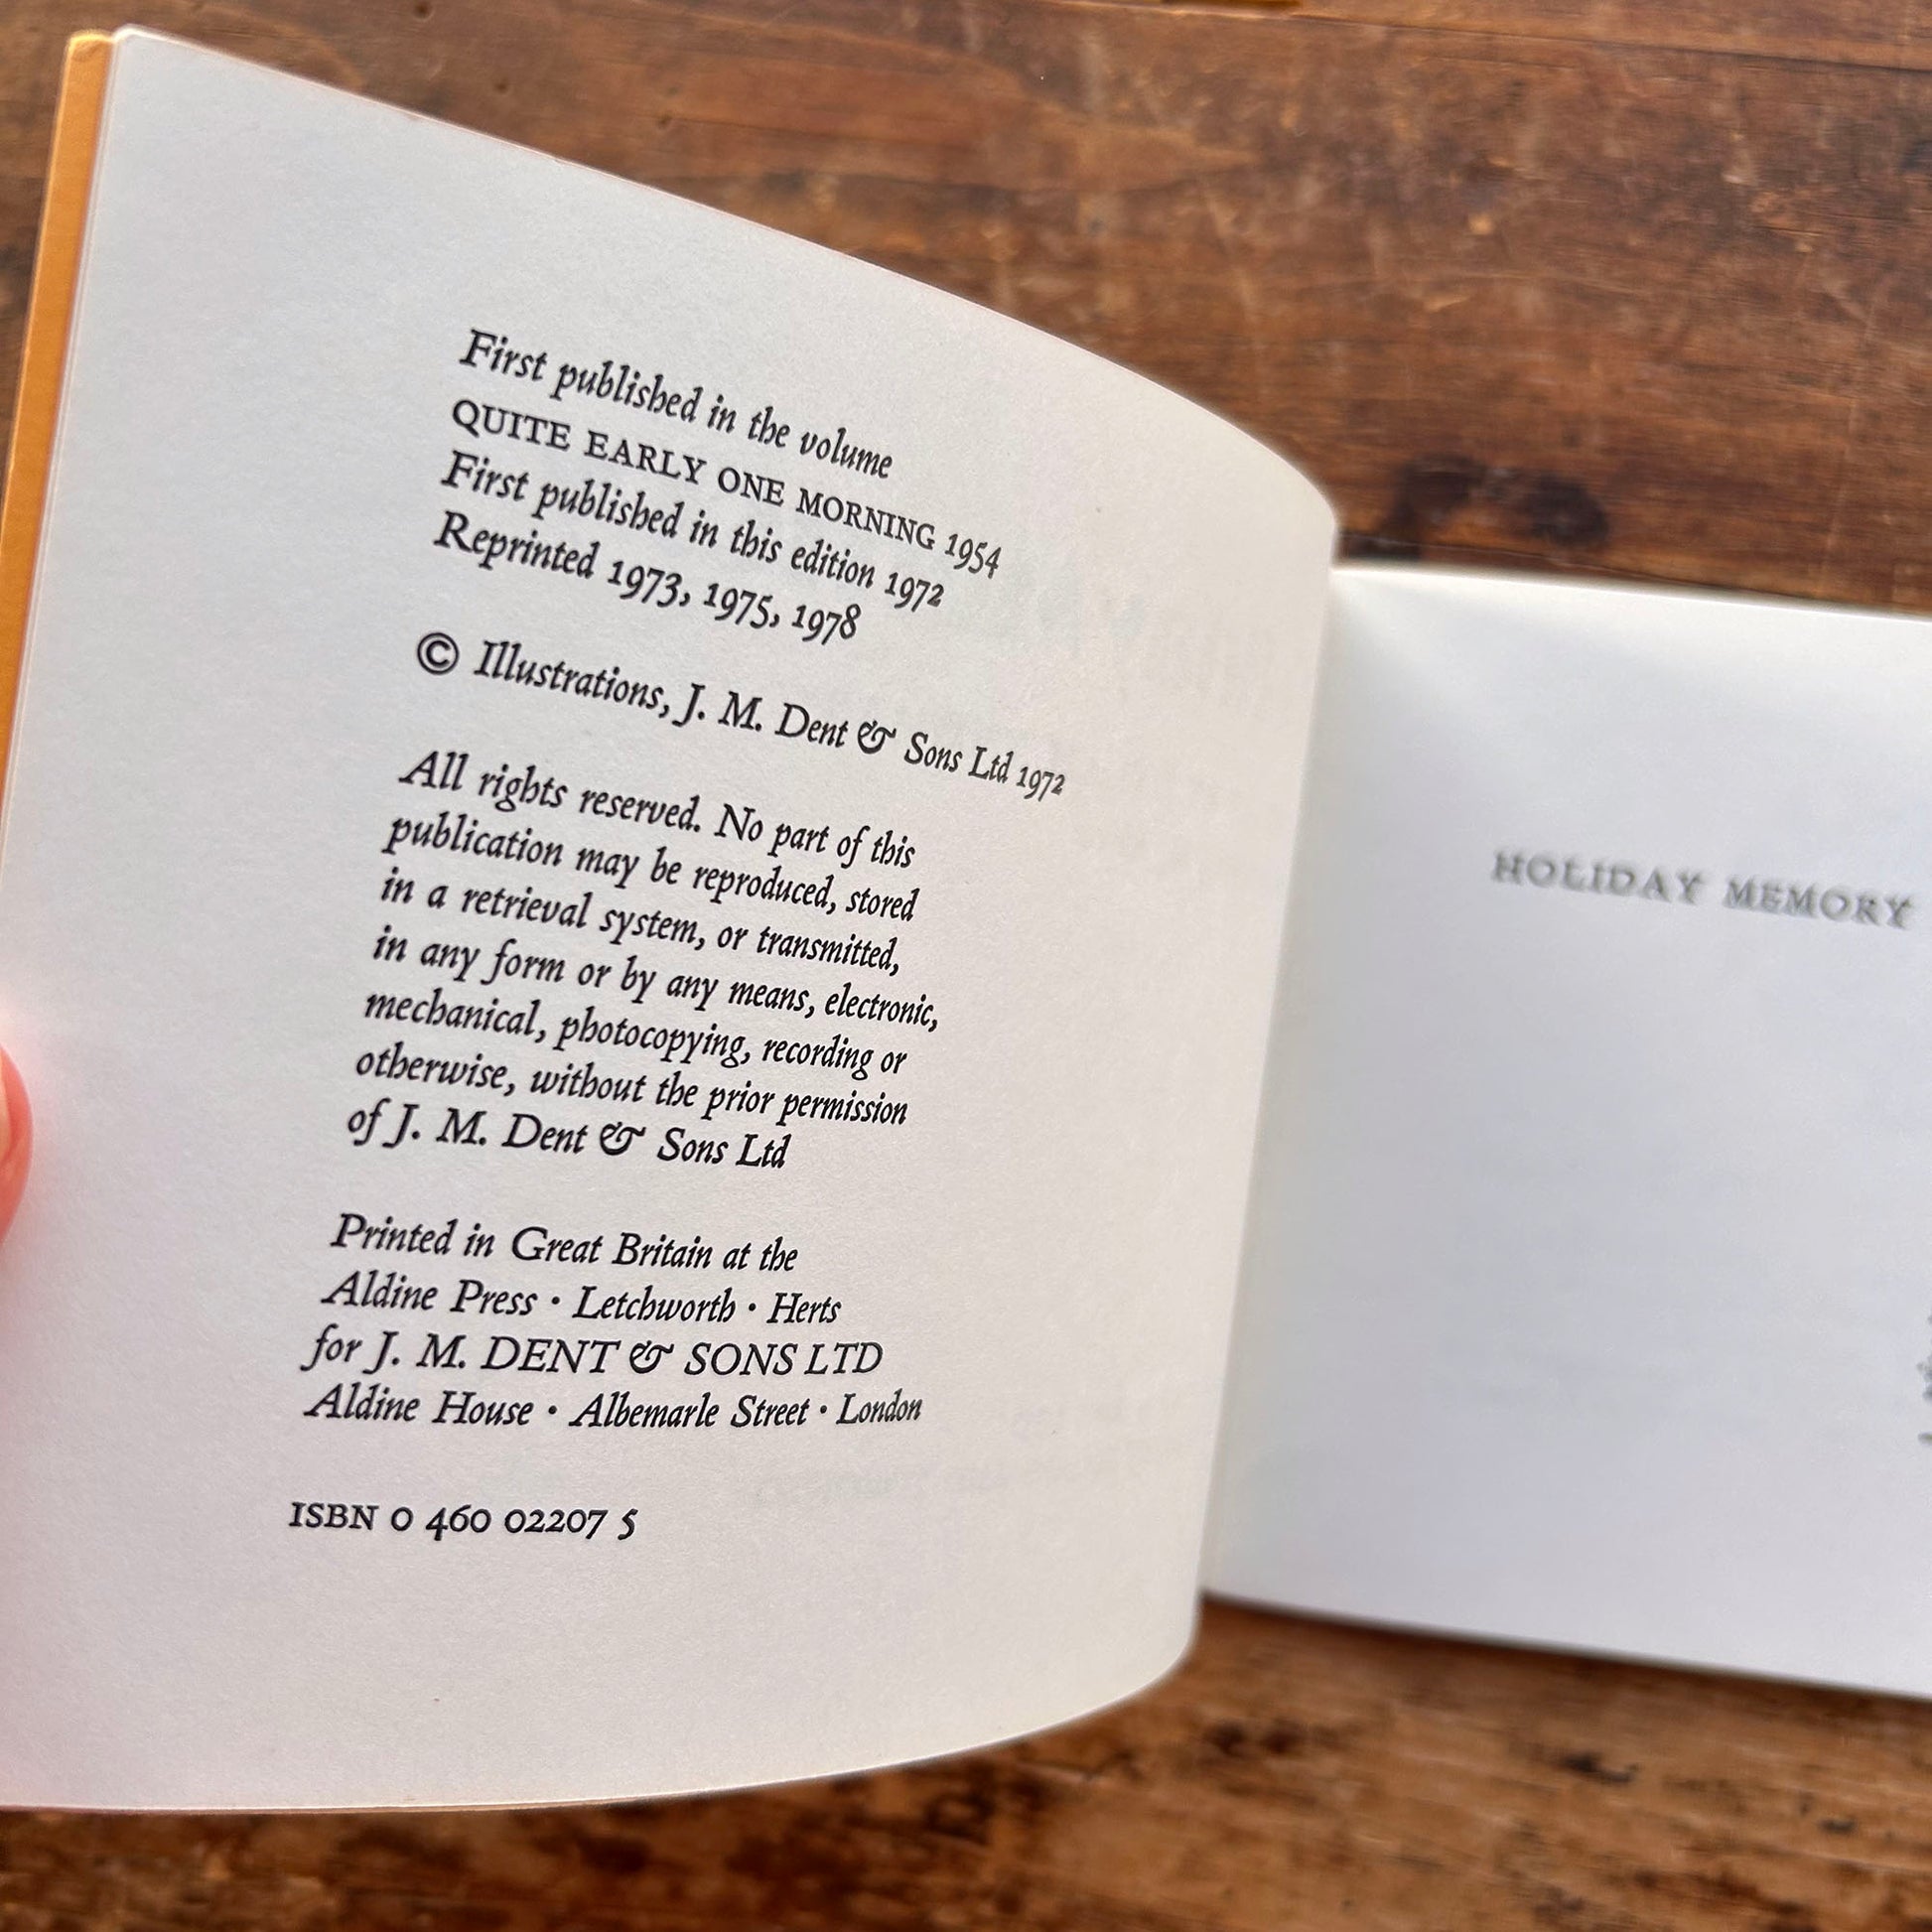 First published in the volume
QUITE EARLY ONE MORNING 1954
First published in this edition 1972
Reprinted 1973, 1975, 1978
© Illustrations, J. M. Dent & Sons Ltd 1972
All rights reserved. No part of this
publication may be reproduced, stored
in a retrieval system, or transmitted,
in any form or by any means, electronic,
mechanical, photocopying, recording or
otherwise, without the prior permission
of J. M. Dent & Sons Ltd
Printed in Great Britain at the
Aldine Press · Letchworth · Herts
for J. M. DENT & SONS LTD
Aldine House · Albemarle Street · London
ISBN 0 460 02207 5
HOLIDAY MEMORY